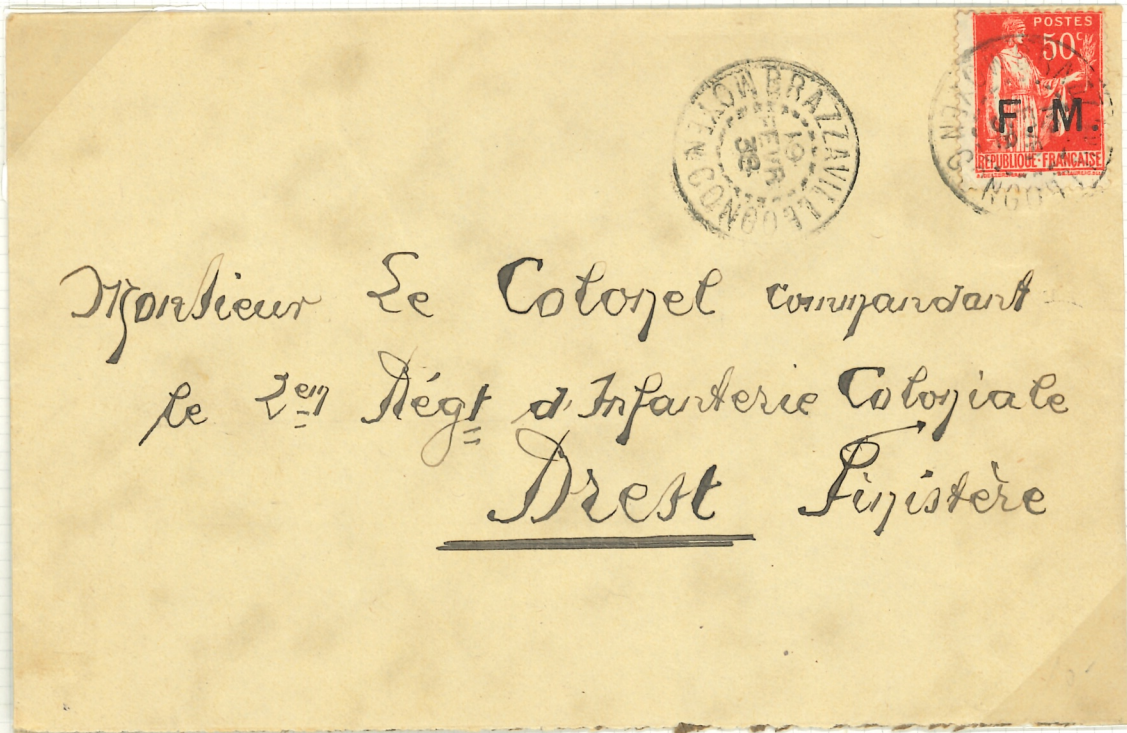 POSTES
50c
F. M.
RÉPUBLIQUE-FRANÇAISE
BRAZZAVILLE
19
FEVR
38
MOYEN CONGO
Monsieur Le Colonel commandant
le 2em Régt d'Infanterie Coloniale
Brest Finistère